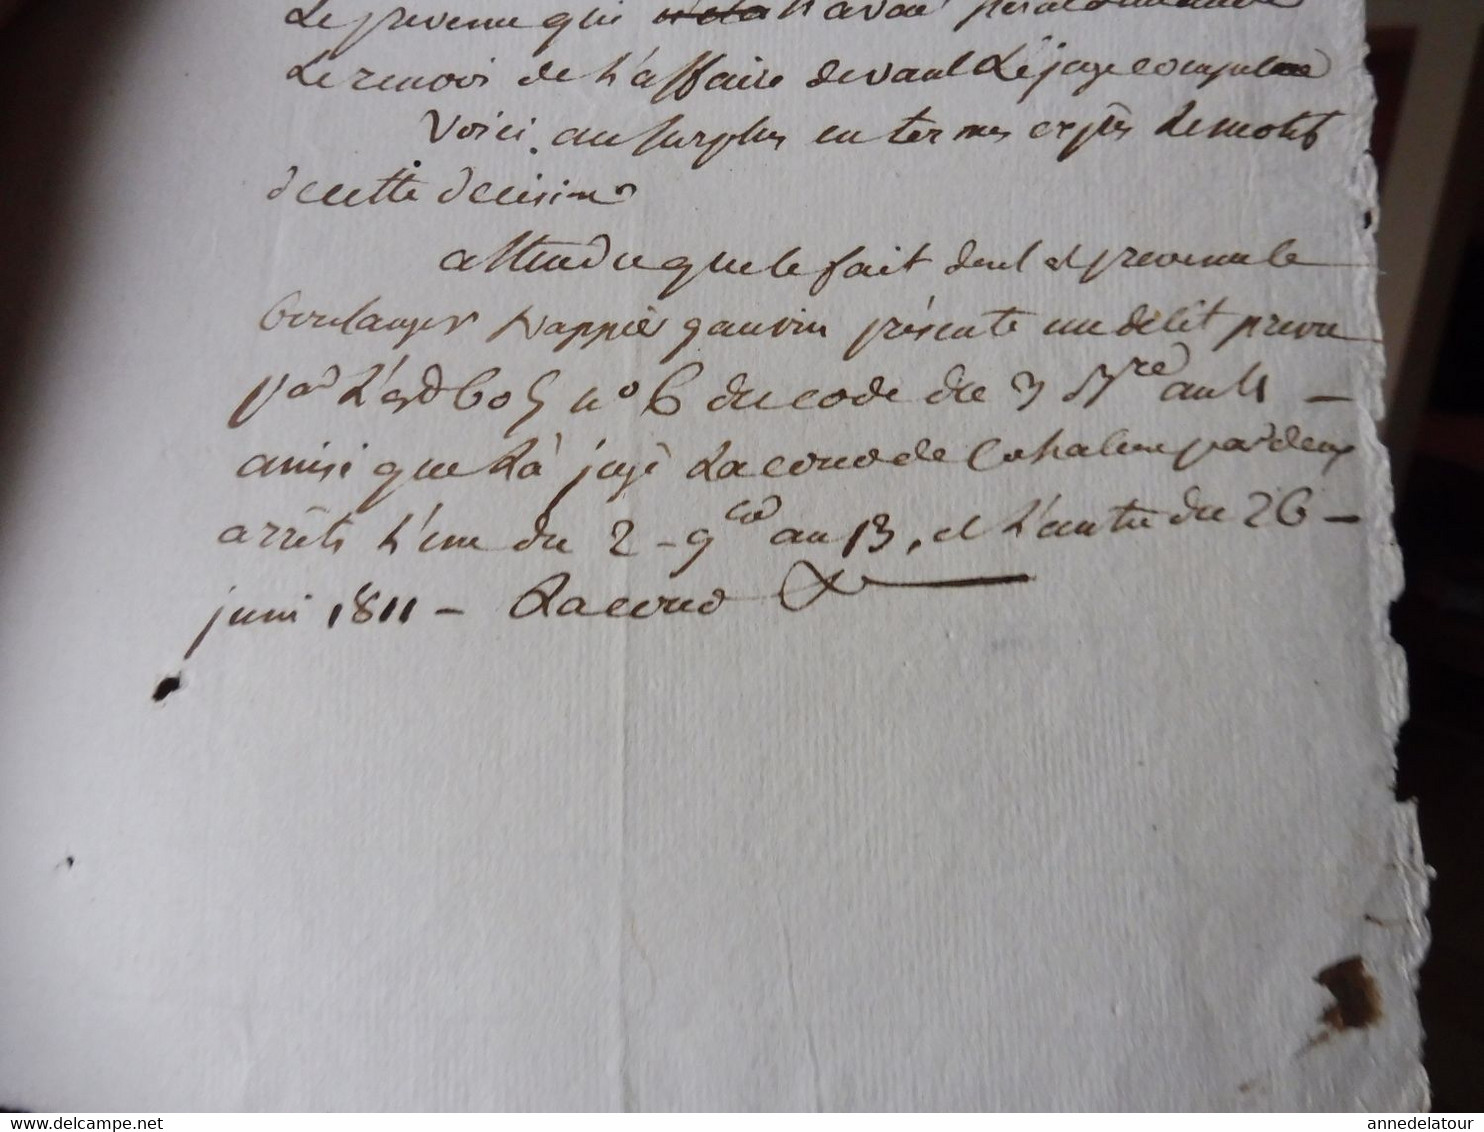 Le prevenu qui
Le renvoi de l'affaire devant Le juge
Voici au surplus en termes exprès Le motif
de cette decision
attendu que le fait dont est prevenu le
boulanger gauvin présente un délit prevu
par L'art 605 n° 6 du code du 3 Bre an 4 –
ainsi que L'a jugé La cour de Cassation par deux
arrêts l'un du 2 – gal an 13, et L'autre du 26 –
juin 1811 – La cour
delcampe.net
annedelatour